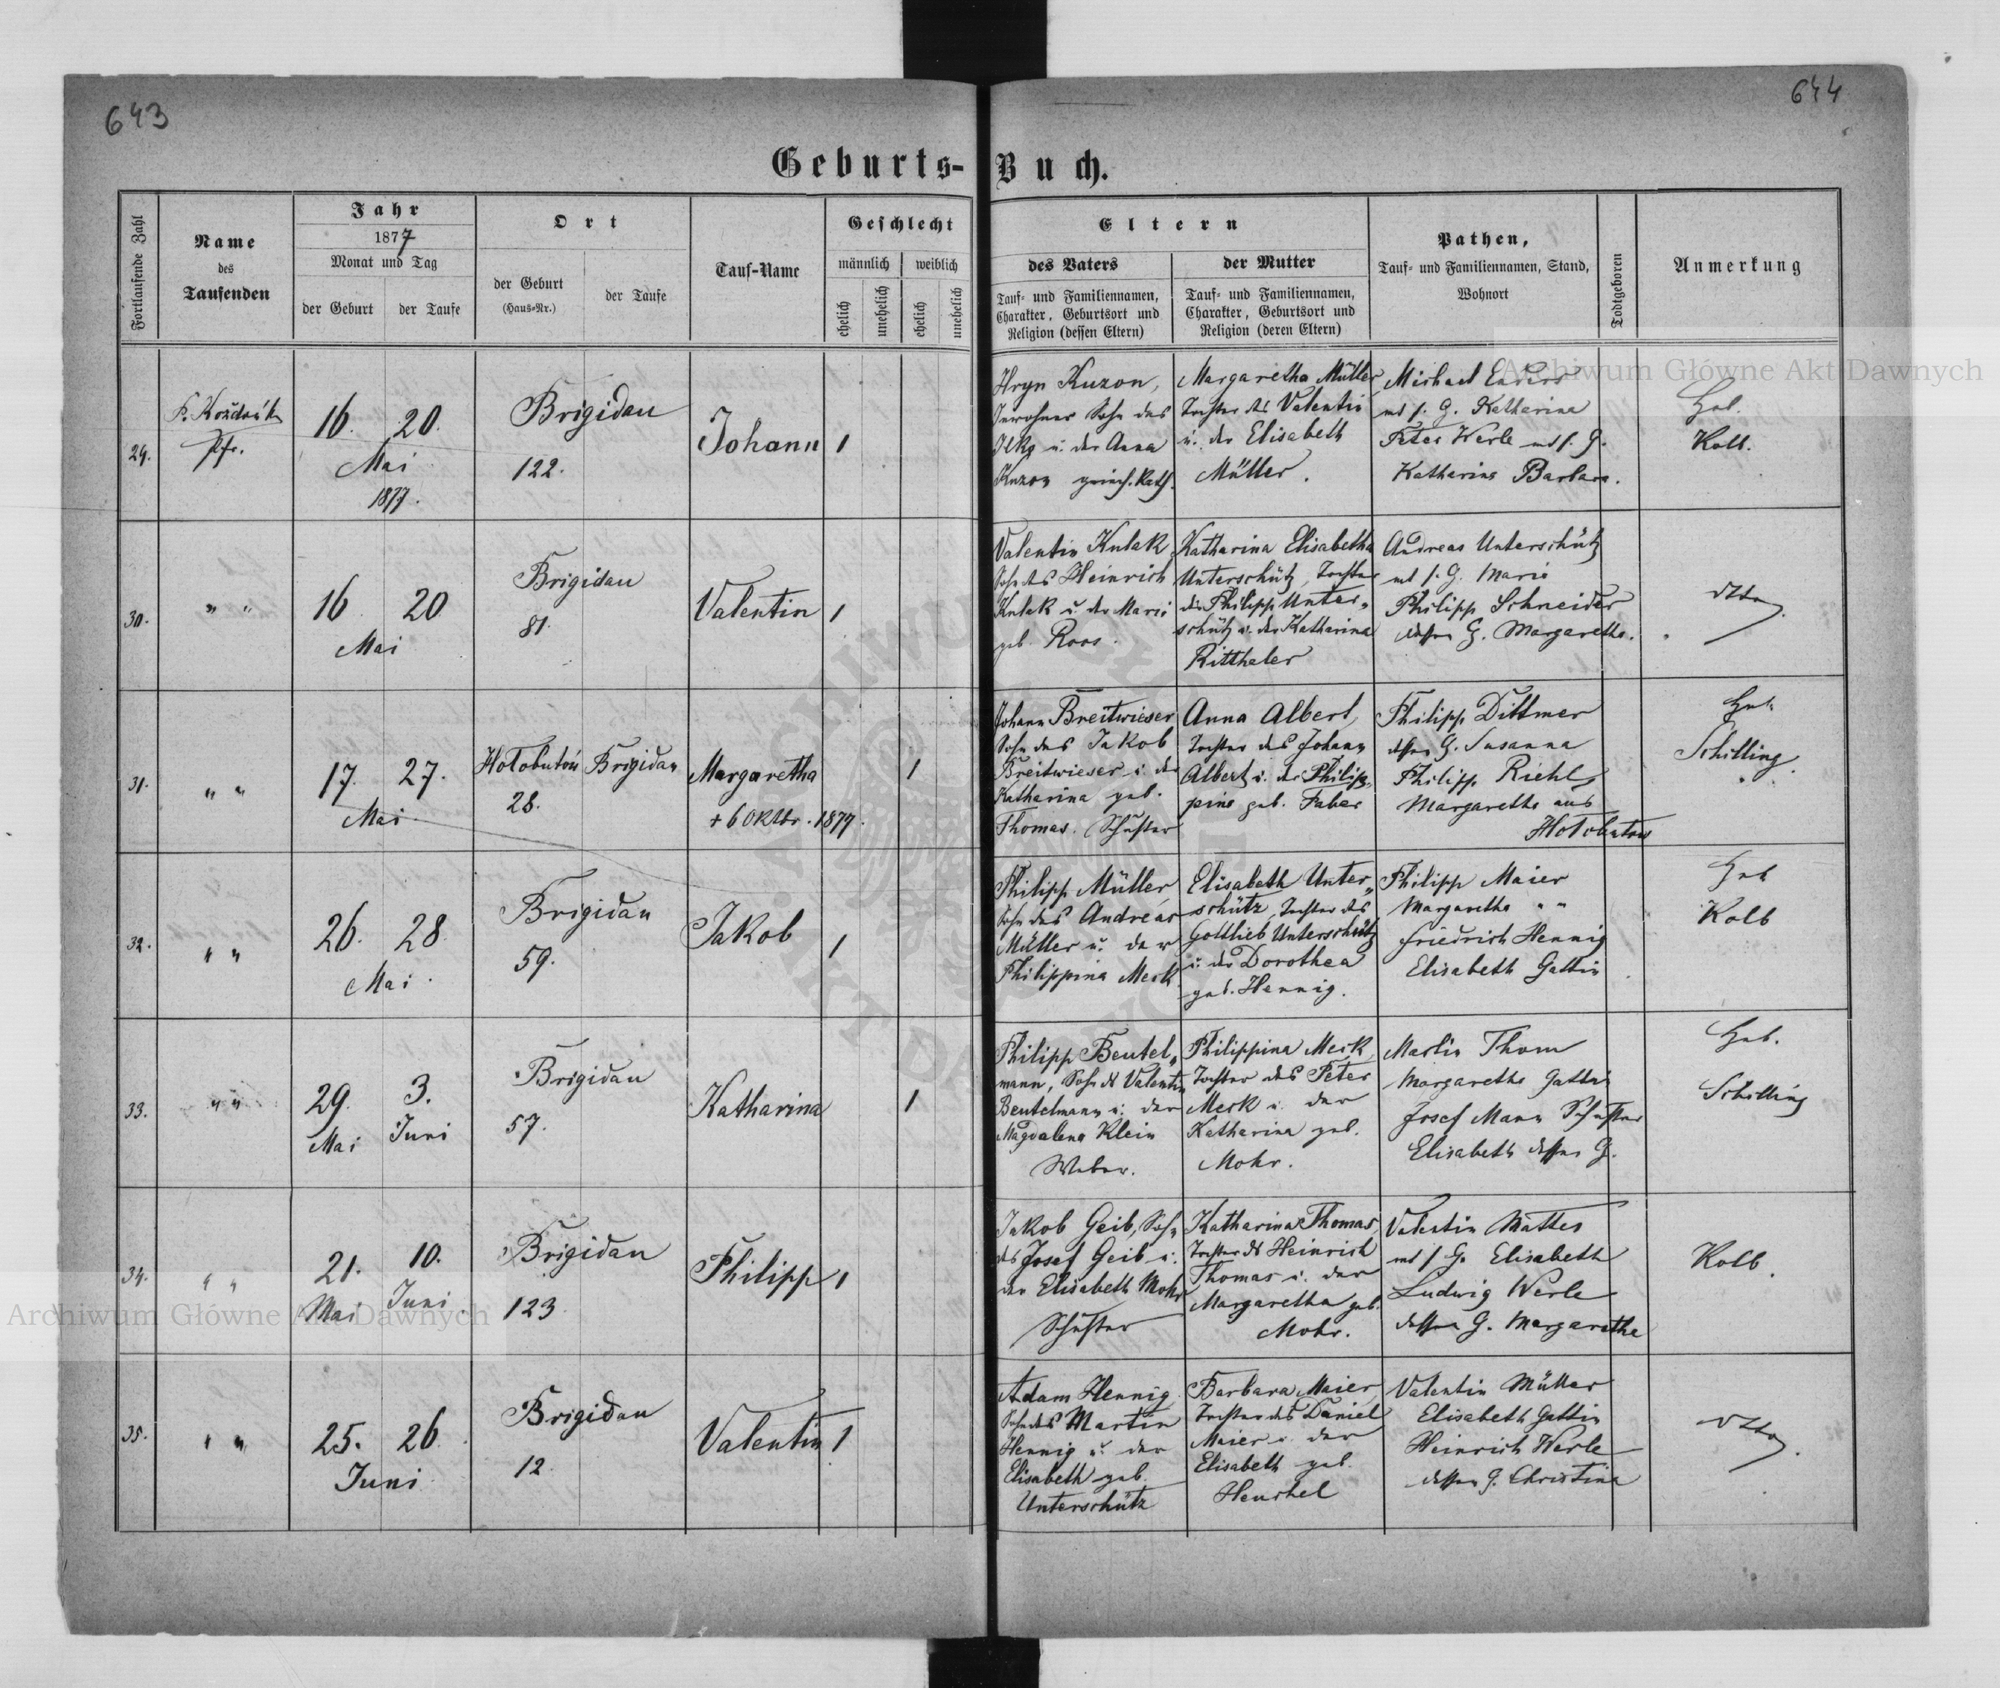 643
644
Geburts-Buch.
Fortlaufende Zahl
Name
des
Taufenden
Jahr
1877
Monat und Tag
der Geburt
der Taufe
Ort
der Geburt
(Haus-Nr.)
der Taufe
Tauf-Name
Geschlecht
männlich
weiblich
ehelich
unehelich
ehelich
unehelich
Eltern
des Vaters
Tauf- und Familiennamen,
Charakter, Geburtsort und
Religion (dessen Eltern)
der Mutter
Tauf- und Familiennamen,
Charakter, Geburtsort und
Religion (deren Eltern)
Pathen,
Tauf- und Familiennamen, Stand,
Wohnort
Todtgeboren
Anmerkung
29.
Pfr.
16. 20.
Mai
1877.
Brigidau
122.
Johann
1
Hryn Kuzon,
Inwohner Sohn des
Ilko u. der Anna
Kuzon griech. kath.
Margaretha Müller
Tochter des Valentin
u. der Elisabeth
Müller.
Michael Enders
mit s. G. Katharina
Peter Werle mit s. G.
Katharina Barbara.
Heb.
Kolb.
30.
" "
16 20
Mai
Brigidau
81.
Valentin
1
Valentin Kulak
Sohn des Heinrich
Kulak u. der Marie
geb. Roos.
Katharina Elisabetha
Unterschütz, Tochter
des Philipp Unter-
schütz u. der Katharina
Ritthaler
Andreas Unterschütz
mit s. G. Marie
Philipp Schneider
dessen G. Margaretha.
dtto
31.
" "
17. 27.
Mai
Hołobutów
28.
Brigidau
Margaretha
+ 6 Oktbr. 1877.
1
Johann Breitwieser
Sohn des Jakob
Breitwieser u. der
Katharina geb.
Thomas. Schuster
Anna Albert,
Tochter des Johann
Albert u. der Philip-
pine geb. Faber
Philipp Dittmer
dessen G. Susanna
Philipp Riehl
Margaretha aus
Hołobutów
Heb.
Schilling.
" .
32.
" "
26. 28
Mai.
Brigidau
59.
Jakob
1
Philipp Müller,
Sohn des Andreas
Müller u. der
Philippina Merk
Elisabeth Unter-
schütz, Tochter des
Gottlieb Unterschütz
u. der Dorothea
geb. Hennig.
Philipp Maier
Margaretha " "
Friedrich Hennig
Elisabeth Gattin
Heb
Kolb
33.
" "
29. 3.
Mai Juni
Brigidau
57.
Katharina
1
Philipp Beutel-
mann, Sohn d. Valentin
Beutelmann u. der
Magdalena Klein
Weber.
Philippina Merk
Tochter des Peter
Merk u. der
Katharina geb.
Mohr.
Martin Thom
Margaretha Gattin
Josef Mann Schuster
Elisabeth dessen G.
Heb.
Schilling
34.
" "
21. 10.
Mai Juni
Brigidau
123
Philipp
1
Jakob Geib, Sohn
des Josef Geib u.
der Elisabeth Mohr
Schuster
Katharina Thomas,
Tochter d. Heinrich
Thomas u. der
Margaretha geb.
Mohr.
Valentin Mattes
mit s. G. Elisabeth
Ludwig Werle
dessen G. Margaretha
Kolb.
35.
" "
25. 26.
Juni
Brigidau
12
Valentin
1
Adam Hennig
Sohn des Martin
Hennig u. der
Elisabeth geb.
Unterschütz
Barbara Maier,
Tochter des Daniel
Maier u. der
Elisabeth geb.
Henchel
Valentin Müller
Elisabeth Gattin
Heinrich Werle
dessen G. Christina
dtto
Archiwum Główne Akt Dawnych
Archiwum Główne Akt Dawnych